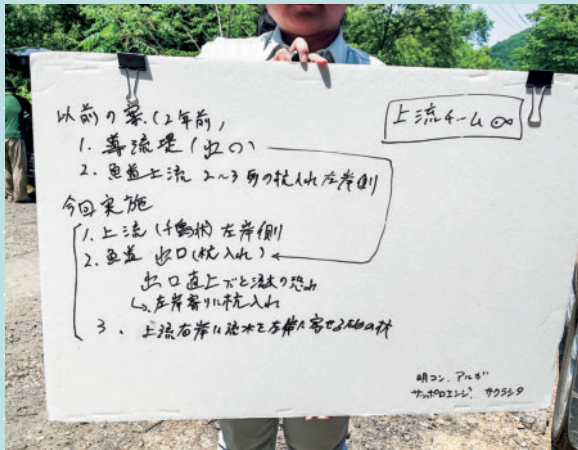 上流チーム
以前の案(2年前)
1. 導流堤(出口)
2. 魚道上流 2〜3列の杭入れ左岸側
今回実施
1. 上流(千鳥状)左岸側
2. 魚道 出口(杭入れ)
出口直上だと流木の恐れ
↳ 左岸寄りに杭入れ
3. 上流右岸に流水を左岸に寄せるための杭
明コン. アルガ
サッポロエンジ. サクラシタ